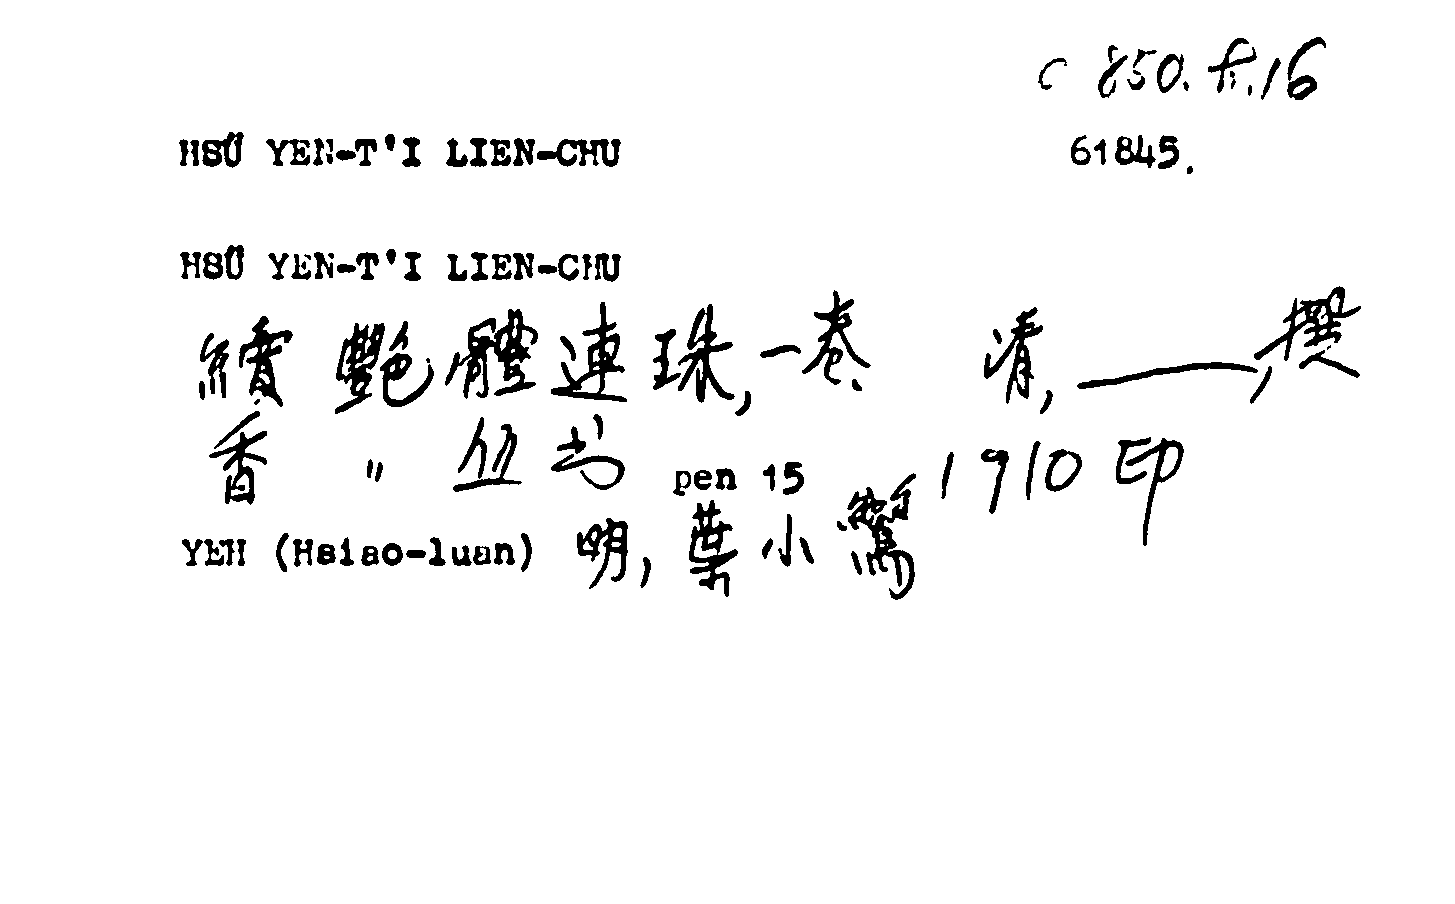 C 850. fi.16
HSÜ YEN-T'I LIEN-CHU 61845.
HSÜ YEN-T'I LIEN-CHU
續艷體連珠,一卷. 清,——,撰
香〃丛书 pen 15 1910印
YEH (Hsiao-luan) 明,葉小鸞